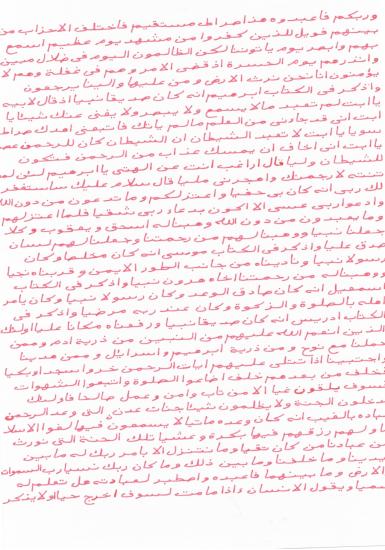 وربكم فاعبدوه هذا صراط مستقيم فاختلف الاحزاب من
بينهم فويل للذين كفروا من مشهد يوم عظيم اسمع
بهم وابصر يوم ياتوننا لكن الظالمون اليوم فى ضلال مبين
وانذرهم يوم الحسرة اذ قضى الامر وهم فى غفلة وهم لا
يؤمنون انا نحن نرث الارض ومن عليها والينا يرجعون
واذكر فى الكتاب ابرهيم انه كان صديقا نبيا اذ قال لابيه
يا ابت لم تعبد ما لا يسمع ولا يبصر ولا يغنى عنك شيئا يا
ابت انى قد جاءنى من العلم ما لم ياتك فاتبعنى اهدك صراطا
سويا يا ابت لا تعبد الشيطان ان الشيطان كان للرحمن عصيا
يا ابت انى اخاف ان يمسك عذاب من الرحمن فتكون
للشيطان وليا قال اراغب انت عن الهتى يا ابرهيم لئن لم
تنته لارجمنك واهجرنى مليا قال سلام عليك ساستغفر
لك ربى انه كان بى حفيا واعتزلكم وما تدعون من دون الله
وادعوا ربى عسى الا اكون بدعاء ربى شقيا فلما اعتزلهم
وما يعبدون من دون الله وهبنا له اسحق ويعقوب وكلا
جعلنا نبيا ووهبنا لهم من رحمتنا وجعلنا لهم لسان
صدق عليا واذكر فى الكتاب موسى انه كان مخلصا وكان
رسولا نبيا وناديناه من جانب الطور الايمن وقربناه نجيا
ووهبنا له من رحمتنا اخاه هرون نبيا واذكر فى الكتاب
اسمعيل انه كان صادق الوعد وكان رسولا نبيا وكان يامر
اهله بالصلوة والزكوة وكان عند ربه مرضيا واذكر فى
الكتاب ادريس انه كان صديقا نبيا ورفعناه مكانا عليا اولئك
الذين انعم الله عليهم من النبين من ذرية ادم وممن
حملنا مع نوح ومن ذرية ابرهيم واسرايل وممن هدينا
واجتبينا اذا تتلى عليهم ايات الرحمن خروا سجدا وبكيا
فخلف من بعدهم خلف اضاعوا الصلوة واتبعوا الشهوات
فسوف يلقون غيا الا من تاب وامن وعمل صالحا فاولئك
يدخلون الجنة ولا يظلمون شيئا جنات عدن التى وعد الرحمن
عباده بالغيب انه كان وعده ماتيا لا يسمعون فيها لغوا الا سلا
ما ولهم رزقهم فيها بكرة وعشيا تلك الجنة التى نورث
من عبادنا من كان تقيا وما نتنزل الا بامر ربك له ما بين
ايدينا وما خلفنا وما بين ذلك وما كان ربك نسيا رب السموات
والارض وما بينهما فاعبده واصطبر لعبادته هل تعلم له
سميا ويقول الانسان ءاذا ما مت لسوف اخرج حيا اولا يذكر